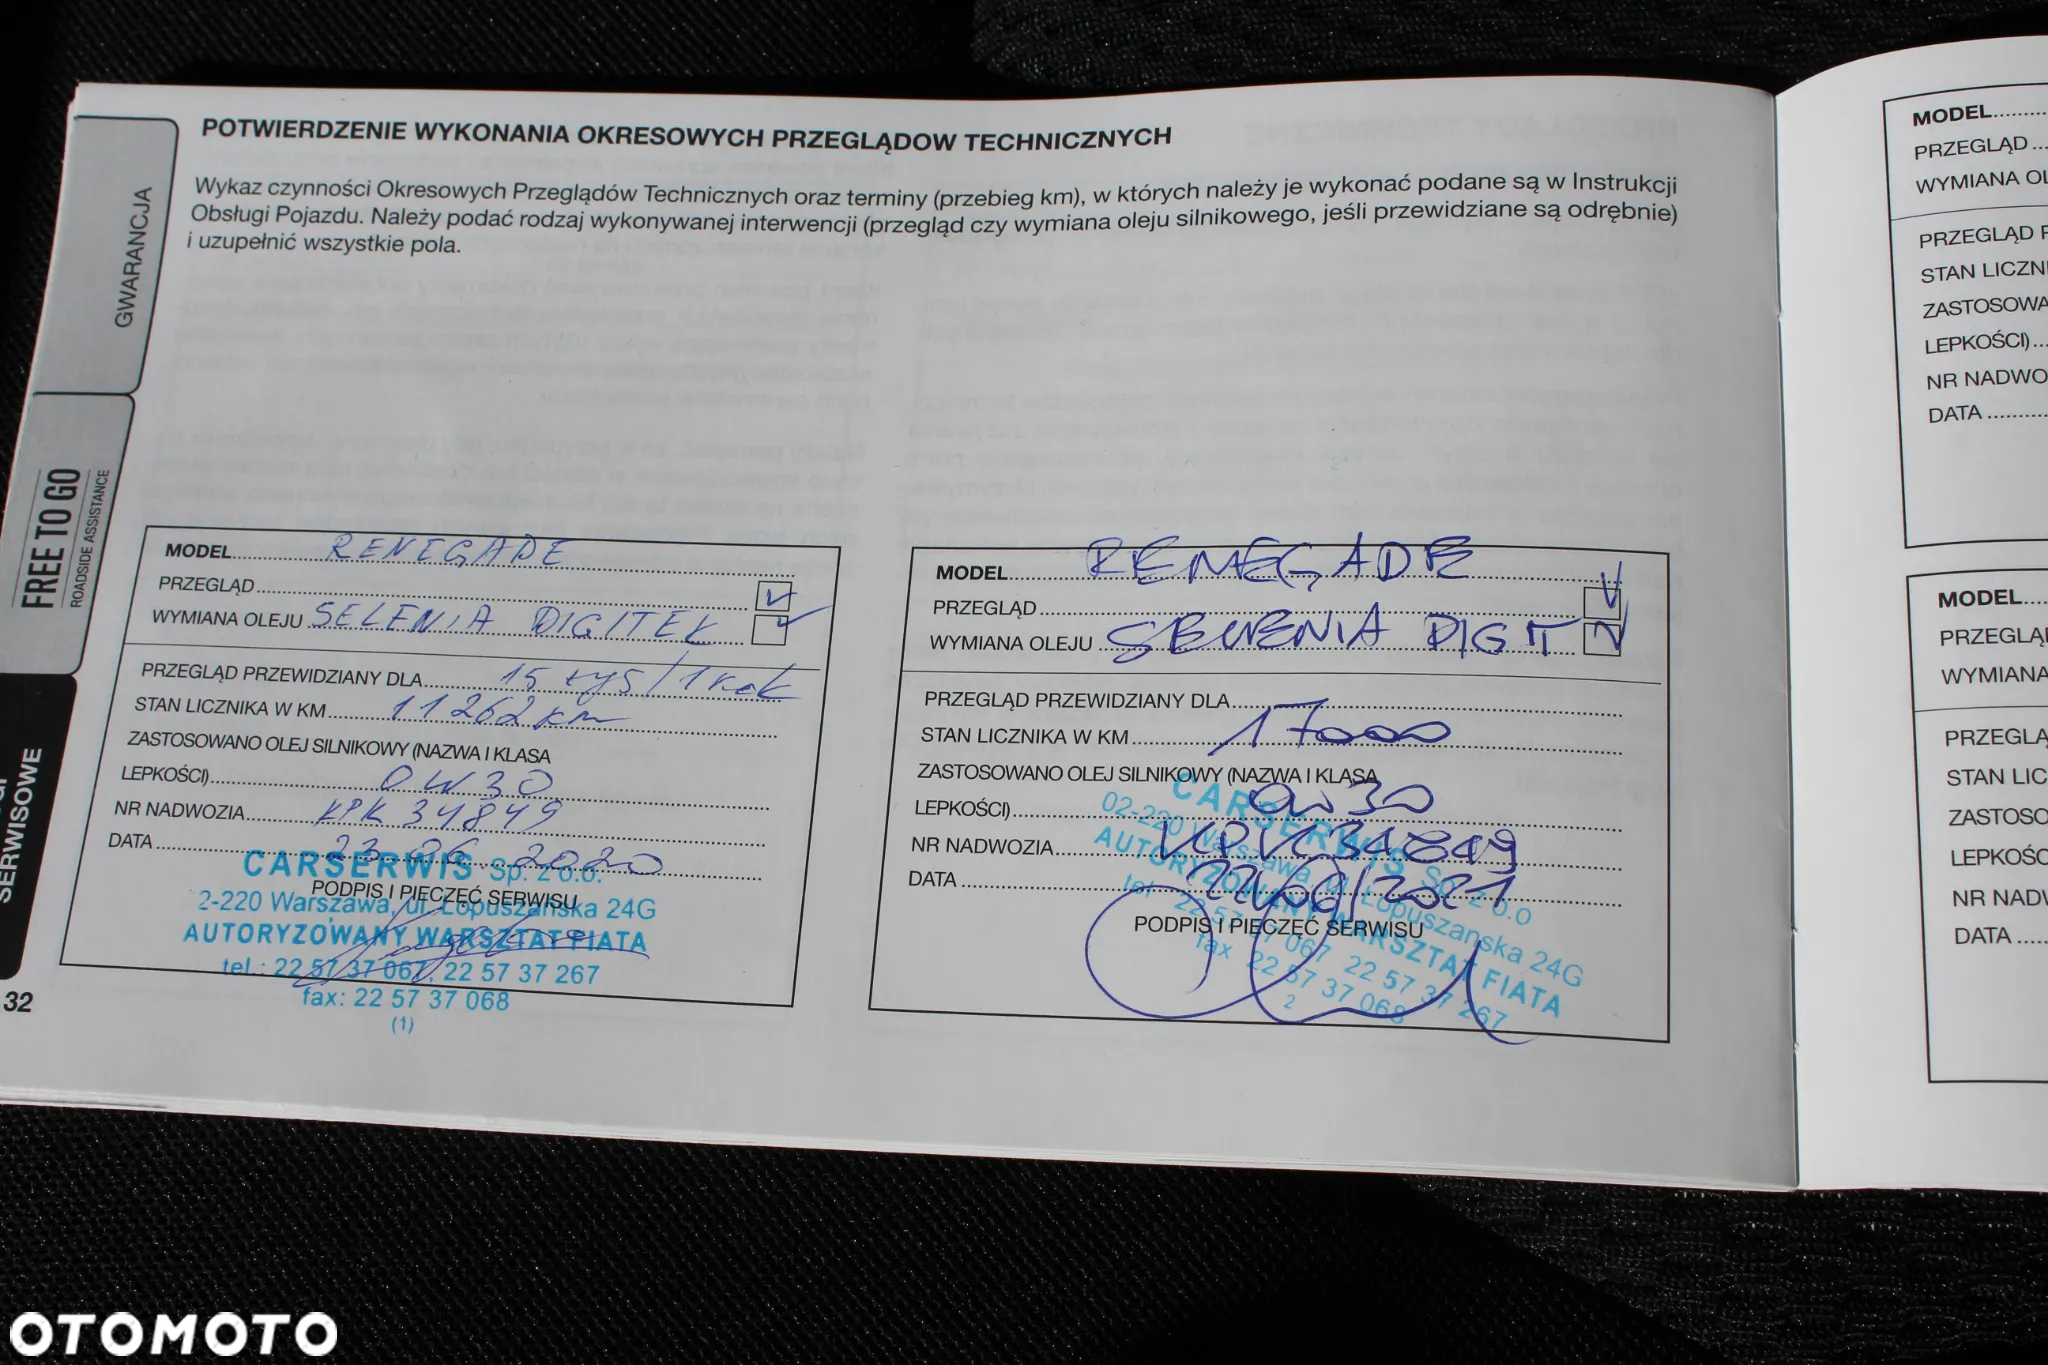 POTWIERDZENIE WYKONANIA OKRESOWYCH PRZEGLĄDOW TECHNICZNYCH
Wykaz czynności Okresowych Przeglądów Technicznych oraz terminy (przebieg km), w których należy je wykonać podane są w Instrukcji
Obsługi Pojazdu. Należy podać rodzaj wykonywanej interwencji (przegląd czy wymiana oleju silnikowego, jeśli przewidziane są odrębnie)
i uzupełnić wszystkie pola.
GWARANCJA
FREE TO GO
ROADSIDE ASSISTANCE
SERWISOWE
32
MODEL RENEGADE
PRZEGLĄD
WYMIANA OLEJU SELENIA DIGITEK
PRZEGLĄD PRZEWIDZIANY DLA 15 tys/1 rok
STAN LICZNIKA W KM 11262 km
ZASTOSOWANO OLEJ SILNIKOWY (NAZWA I KLASA
LEPKOŚCI) 0W30
NR NADWOZIA KPK 34849
DATA 23 06 2020
CARSERWIS Sp. z o.o.
PODPIS I PIECZĘĆ SERWISU
2-220 Warszawa, ul. Łopuszańska 24G
AUTORYZOWANY WARSZTAT FIATA
tel.: 22 57 37 067, 22 57 37 267
fax: 22 57 37 068
(1)
MODEL RENEGADE
PRZEGLĄD
WYMIANA OLEJU SELENIA DIGIT
PRZEGLĄD PRZEWIDZIANY DLA
STAN LICZNIKA W KM 17000
ZASTOSOWANO OLEJ SILNIKOWY (NAZWA I KLASA
LEPKOŚCI) 0W30
NR NADWOZIA 34849
DATA 2021
PODPIS I PIECZĘĆ SERWISU
CARSERWIS Sp. z o.o
02-220 Warszawa, ul. Łopuszańska 24G
AUTORYZOWANY WARSZTAT FIATA
tel. 22 57 37 067 22 57 37 267
fax 22 57 37 068
2
MODEL
PRZEGLĄD
WYMIANA OL
PRZEGLĄD P
STAN LICZNI
ZASTOSOWA
LEPKOŚCI)
NR NADWO
DATA
MODEL
PRZEGLĄ
WYMIANA
PRZEGLĄ
STAN LIC
ZASTOSO
LEPKOŚC
NR NADW
DATA
OTOMOTO